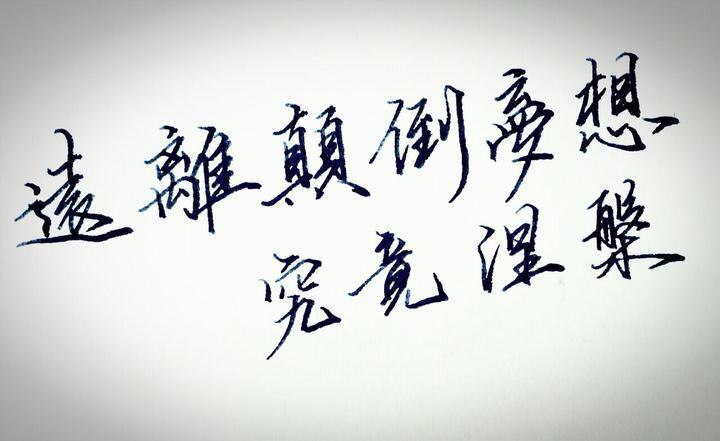 遠離顛倒夢想
究竟涅槃